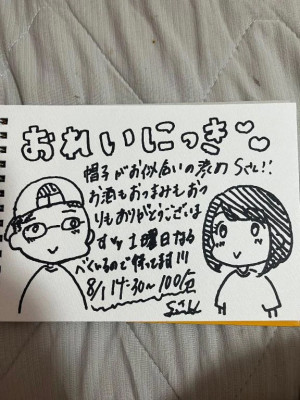 おれいにっき
帽子がお似合いの Sさん!!
お酒もおつまみもおつ
りもありがとうございま
す 土曜日なる
べくいるので待ってます!!!
8/1 17:30~ 100分